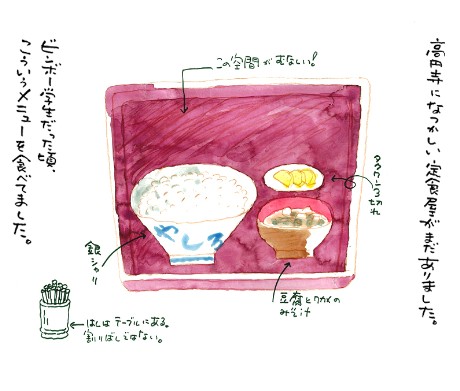 高円寺になつかしい定食屋がまだありました。
この空間がむなしい!
タクワン3切れ
やしろ
銀シャリ
豆腐とワカメの
みそ汁
ビンボー学生だった頃、
こういうメニューを食べてました。
はしはテーブルにある。
割りばしではない。